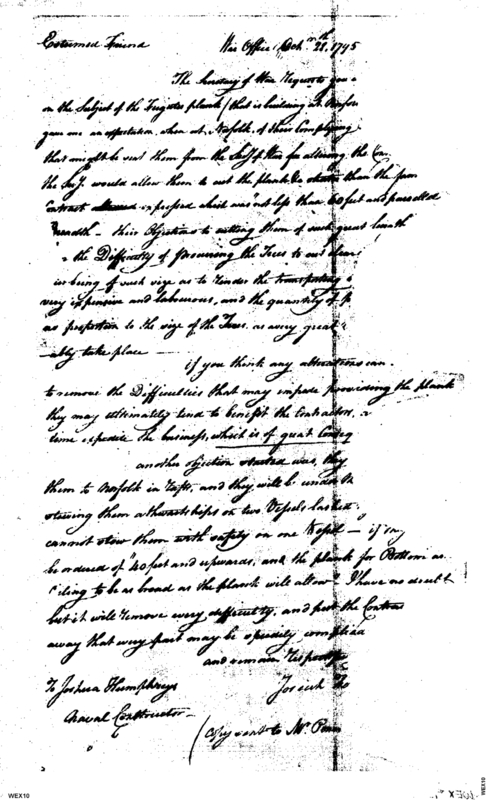 Esteemed Friend War Office Octr. 28th. 1795
The Secretary of War requests you
on the Subject of the Frigates plank (that is building at Norfo
gave me an expectation when at Norfolk, of their Complying
that might be sent them from the Secy. of War for altering the Con
the Secy. would allow them to cut the plank than the
Contract expressed which was not less than 60 feet and parrallel
breadth - their Objections to cutting them of such great length
the Difficulty of procuring the Trees to cut clear
being of such size as to render the transporting
very expensive and labourous, and the quantity of
as proportion to the size of the Trees. as every great
ably take place —
if you think any alterations can
to remove the Difficulties that may impede providing the plank
they may ultimately tend to benefit the Contractors, a
time expedite the business, which is of great Conseq
another objection started was, they
them to Norfolk in rafts, and they will be under
stowing them athwartships on two Vessels lashed
cannot stow them with safety on one Vessel — if
be ordered of "40 feet and upwards, and the plank for Bottom
"Ceiling to be as broad as the plank will allow" I have no doubt
but it will remove every difficulty, and put the Contrac
away that every part may be speedily
and remain
To Joshua Humphreys Josiah Fo
Naval Constructor —
(Copy sent to Mr. Penn
WEX10
WEX10